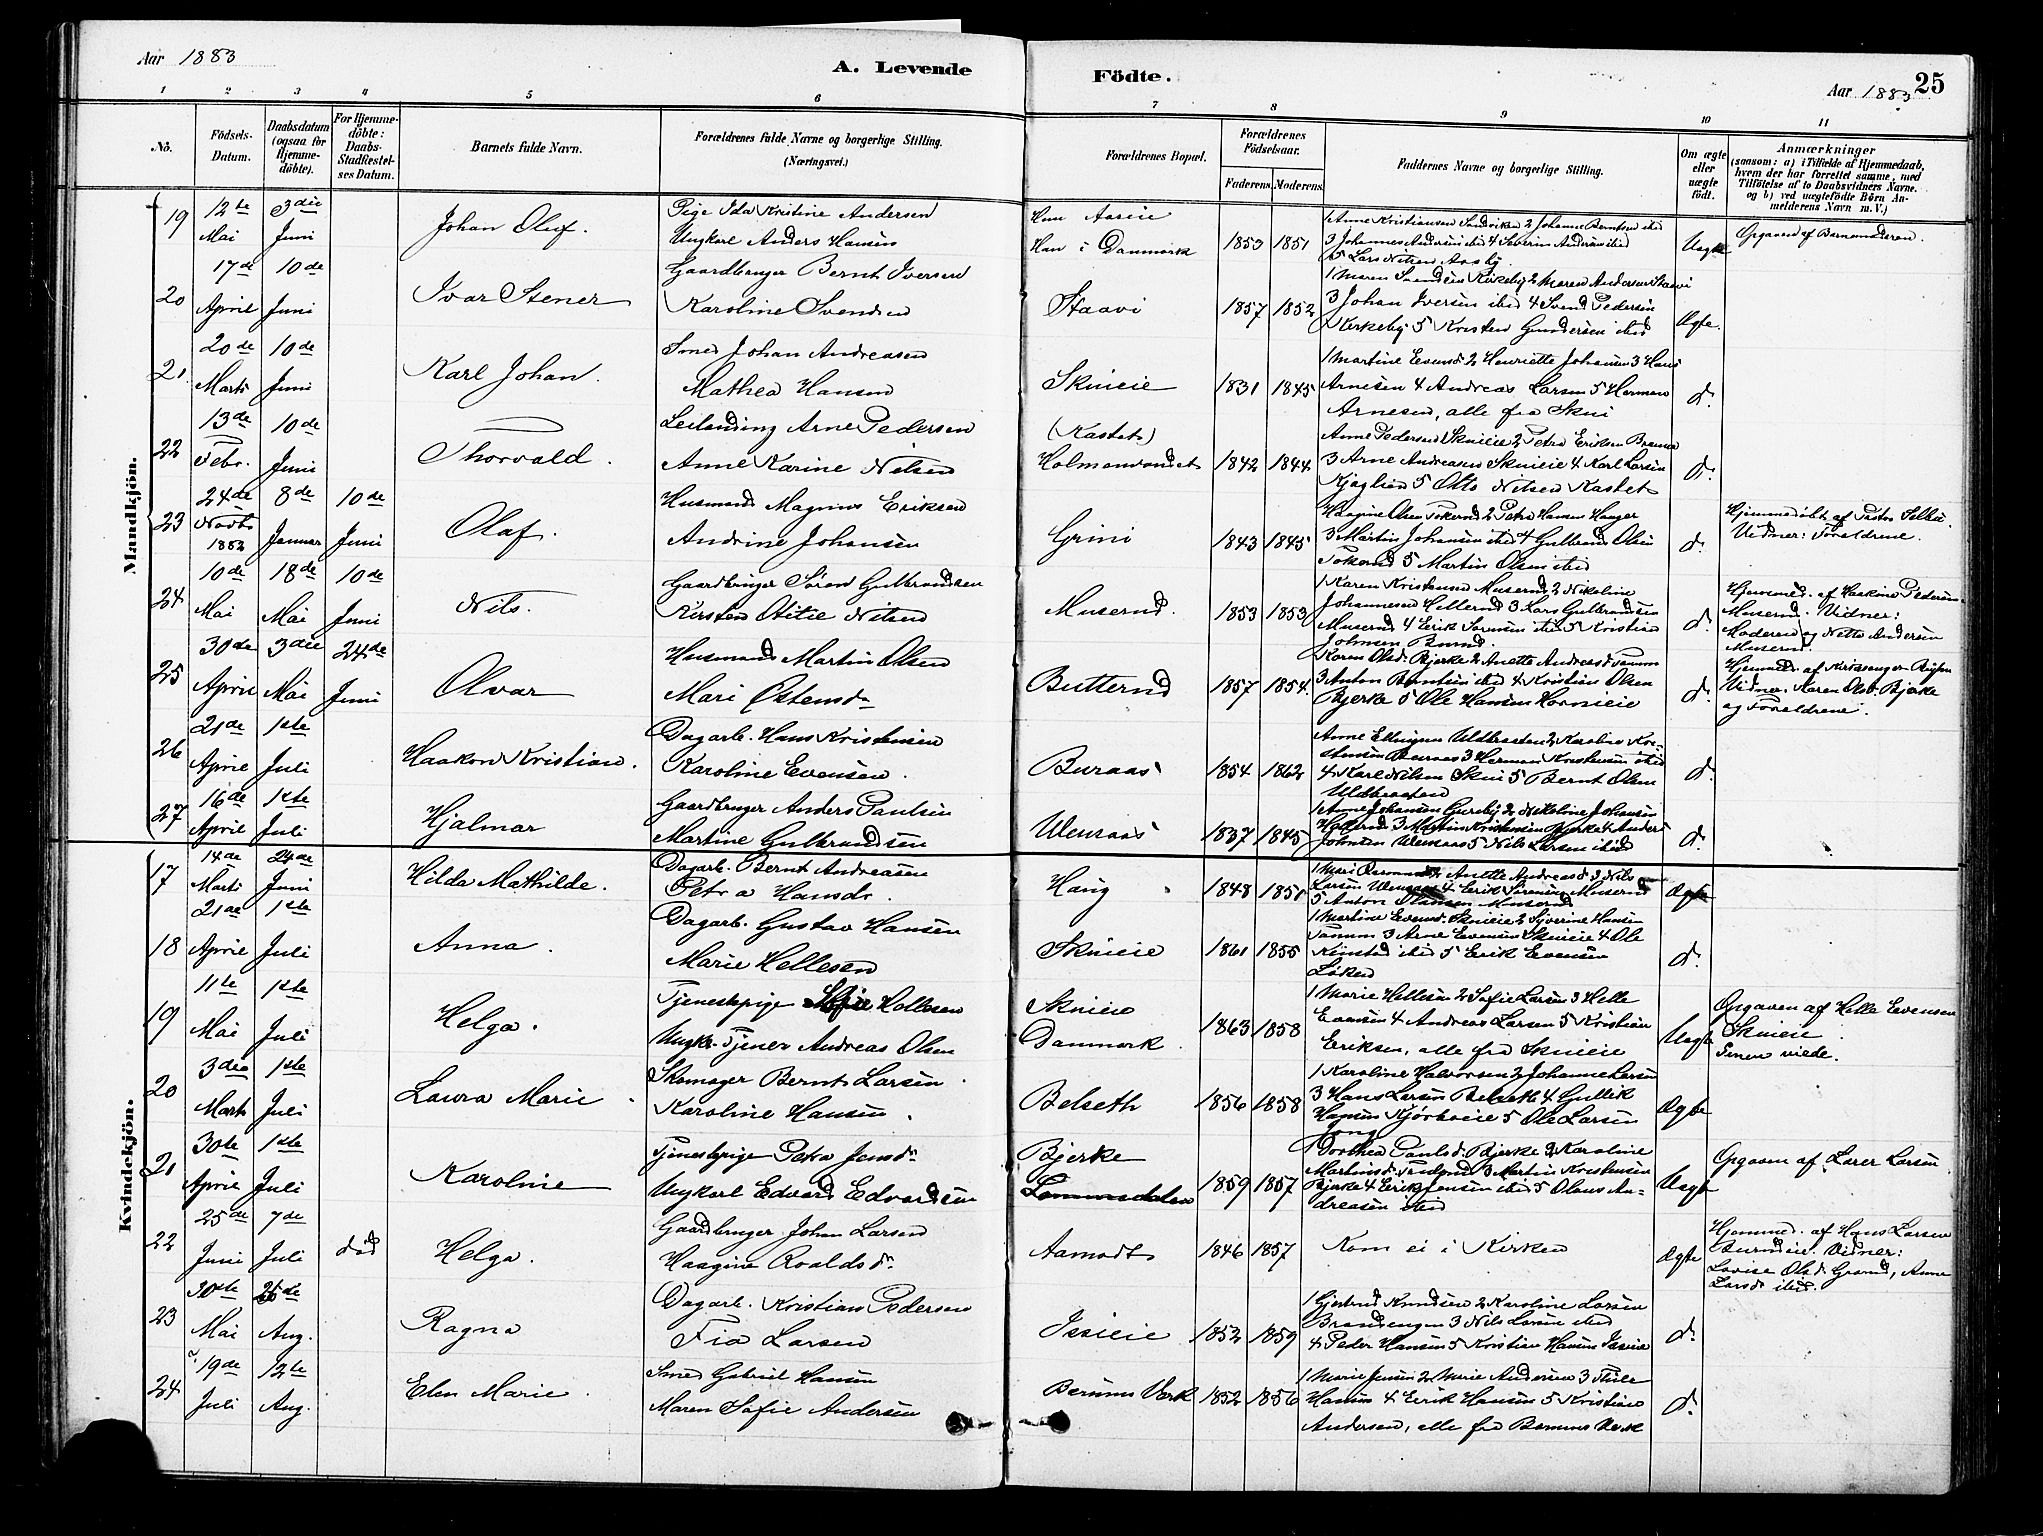 Aar 1883
A. Levende
Födte.
Aar 1883
25
1 2 3 4 5 6 7 8 9 10 11
No.
Födsels-Datum.
Daabsdatum (ogsaa for Hjemme-döbte).
For Hjemme-döbte: Daabs-Stadfæstel-ses Datum.
Barnets fulde Navn.
Forældrenes fulde Navne og borgerlige Stilling. (Næringsvei.)
Forældrenes Bopæl.
Forældrenes Födselsaar.
Faderens. Moderens.
Faddernes Navne og borgerlige Stilling.
Om ægte eller uægte födt.
Anmærkninger
(saasom: a) i Tilfælde af Hjemmedaab, hvem der har forrettet samme, med Tilföielse af to Daabsvidners Navne. og b) ved uægtefödte Börn An-melderens Navn m. V.)
Mandkjön.
19 12te Mai 3die Juni Johan Oluf.
Pige Ida Kristine Andersen
Ungkarl Anders Hansen
Han i Danmark 1853 1851
3 Johannes Andersen ibid 4 Severin Andersen ibid
5 Lars Nilsen Aasby
Uægte
Opgaven af Barnemoderen.
20 17de April 10de Juni Ivar Stener
Gaardbruger Bernt Iversen
Karoline Svendsen
Staavi 1857 1852
3 Johan Iversen ibid 4 Svend Pedersen
Kirkeby 5 Kristen Gundersen ibid
Ægte.
21 20de Marts 10de Juni Karl Johan.
Smed Johan Andreasen
Mathea Hansen
Skuieie 1831 1845
1 Martine Evensd. 2 Henriette Johansen 3 Hans
Arnesen 4 Andreas Larsen 5 Herman
Arnesen, alle fra Skui
d.
22 13de Febr. 10de Juni Thorvald.
Leilending Arne Pedersen
Anne Karine Nilsen
(Kastet)
Holmenvandet 1842 1844
Anne Pedersen Skuieie 2 Petra Eriksen
3 Arne Andreasen Skuieie 4 Karl Larsen
Kjaglien 5 Otto Nilsen Kastet
d.
23 24de Novbr. 1882 8de Januar 10de Juni Olaf.
Husmand Magnus Eriksen
Andrine Johansen
Grini 1843 1845
Haagine Olsen Tokerud 2 Petra Hansen Hauger
3 Martin Johansen ibid 4 Gulbrand Olsen
Tokerud 5 Martin Olsen ibid
d.
Hjemmedøbt af Pastor
Vidner: Forældrene.
24 10de Mai 18de Mai 10de Juni Nils.
Gaardbruger Søren Gulbrandsen
Kirsten Otilie Nilsen
Muserud. 1853 1853
1 Karen Kristensen Muserud 2 Nikoline
Johannesen Hellerud 3 Lars Gulbrandsen
Muserud 4 Erik Sørensen ibid 5 Kristian
Johnsen
d.
Hjemmed. af Haakine Pedersen
Muserud. Vidner:
Moderen og Nette Andersen
Muserud.
25 30de April 3die Mai 24de Juni Olvar
Husmand Martin Olsen
Mari Østensd.
Butterud 1857 1854.
Karen Olsd. Bjerke 2 Anette Andreasd. Tanum
3 Anton Berntsen ibid 4 Kristian Olsen
Bjerke 5 Ole Hansen Hornieie
d.
Vidner. Karen Olsd. Bjerke
og Forældrene.
26 21de April 1ste Juli Haakon Kristian.
Dagarb. Hans Kristensen
Karoline Evensen.
Buraas 1854 1862
Buraas 3 Herman Kristensen ibid
4 Karl Nilsen Skui 5 Bernt Olsen
d.
27 16de April 1ste Juli Hjalmar
Gaardbruger Anders Paulsen
Martine Gulbrandsen
Ueuraas 1837 1845
1 Anne Johansen Gureby 2 Nikoline Johansen
Hellerud 3 Martin Kristensen Bjerke 4 Anders
Johnsen Ueuraas 5 Nils Larsen ibid
d.
Kvindekjön.
17 14de Marts 24de Juni Hilda Mathilde.
Dagarb. Bernt Andreasen
Petra Hansd.
Haug 1848 1851
4 Erik Sørensen Muserud
5 Anton Muserud
Ægte
18 21de April 1ste Juli Anna.
Dagarb. Gustav Hansen
Marie Hellesen
Skuieie 1861 1855
1 Martine Evensd. Skuieie 2 Syverine Hansen
Tanum 3 Arne Evensen Skuieie 4 Ole
ibid 5 Erik Evensen
Løken
d.
19 11te Mai 1ste Juli Helga.
Tjenestepige Hellesen
Ungk. Tjener Andreas Olsen
Skuieie
Danmark. 1863 1858
1 Marie Hellesen 2 Sofie Larsen 3 Helle
Evensen 4 Andreas Larsen 5 Kristian
Eriksen, alle fra Skuieie
Uægte
Opgaven af Helle Evensen
Skuieie.
Senere viede.
20 3die Marts 1ste Juli Laura Marie.
Skomager Bernt Larsen
Karoline Hansen.
Belseth 1856 1858
1 Karoline Halvorsen 2 Johanne Larsen
3 Hans Larsen Belseth 4 Gullik
Hansen Kjørboeie 5 Ole Larsen
Jong
Ægte
21 30te April 1ste Juli Karoline
Tjenestepige Petra Jensd.
Ungkarl Edvard Edvardsen
Bjerke
Lommedalen 1859 1857
Dorthea Paulsd. Bjerke 2 Karoline
3 Martin Kristensen
Bjerke 4 Erik Jensen ibid 5 Olaus An-
dreasen ibid
Uægte
Opgaven af Larer Larsen
22 25de Juni 7de Juli død Helga.
Gaardbruger Johan Larsen
Haagine Roaldsd.
Aamodt 1846 1857 Kom ei i Kirken Ægte
Hjemmed. af Hans Larsen
Vidner:
Lovise Olsd. Grand, Anne
Larsd. ibid.
23 30te Mai 26de Aug. Ragna
Dagarb. Kristian Pedersen
Fia Larsen
Issieie 1852 1859
1 Gjertrud Knudsen 2 Karoline Larsen
Brandengen 3 Nils Larsen ibid
4 Peder Hansen 5 Kristian Hansen Issieie
d.
24 19de Juli 12te Aug. Elen Marie.
Smed Gabriel Hansen
Maren Sofie Andersen
Bærums Værk 1852 1856
1 Marie Jensen 2 Marie Andersen 3
Hansen 4 Erik Hansen 5 Kristian
Andersen, alle fra Bærums Værk
d.